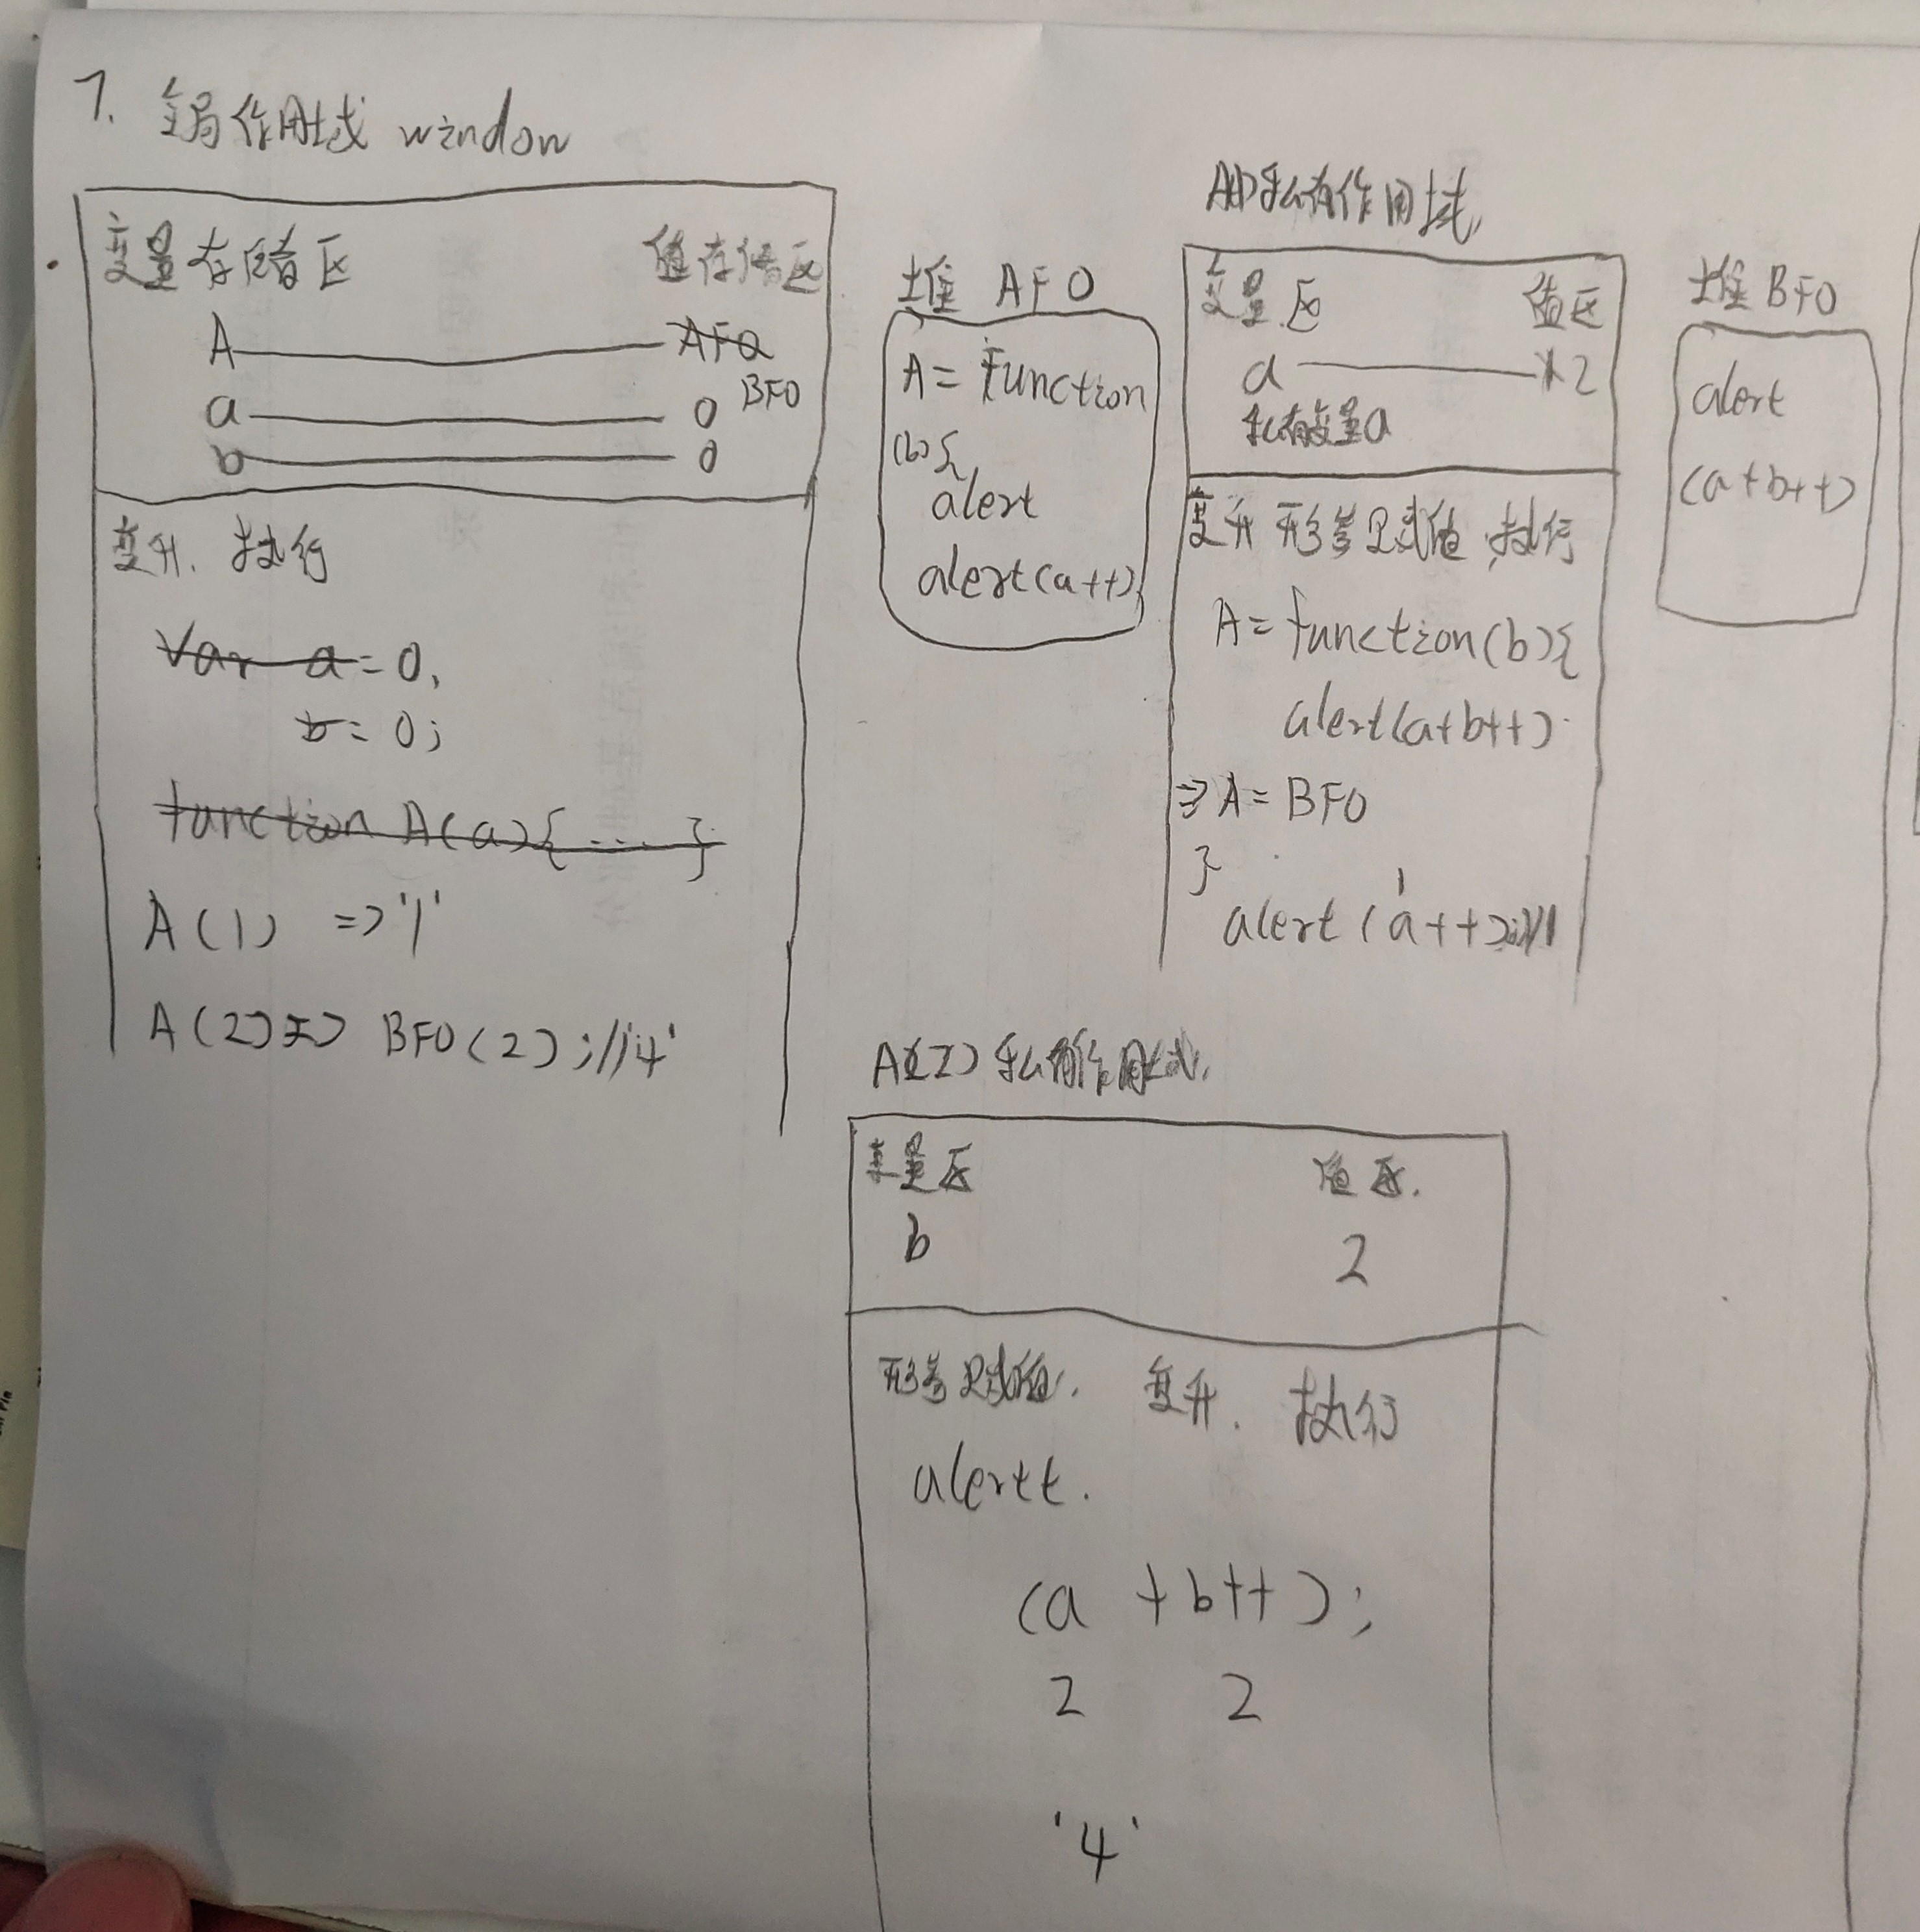 7. 全局作用域 window
变量存储区 值存储区
A AFO
BFO
a 0
b 0
变升、执行
Var a = 0,
b = 0;
function A(a){ ... }
A(1) => '1'
A(2) => BFO(2);//'4'
堆 AFO
A = function
(b){
alert
alert(a++)}
A(1)私有作用域
变量区 值区
a 1 2
私有变量a
变升 形参赋值 执行
A = function(b){
alert(a+b++)
=> A = BFO
}
1
alert(a++);//1
堆 BFO
alert
(a+b++)
A(2) 私有作用域
变量区 值区.
b 2
形参赋值. 变升. 执行
alert
(a + b++);
2 2
'4'